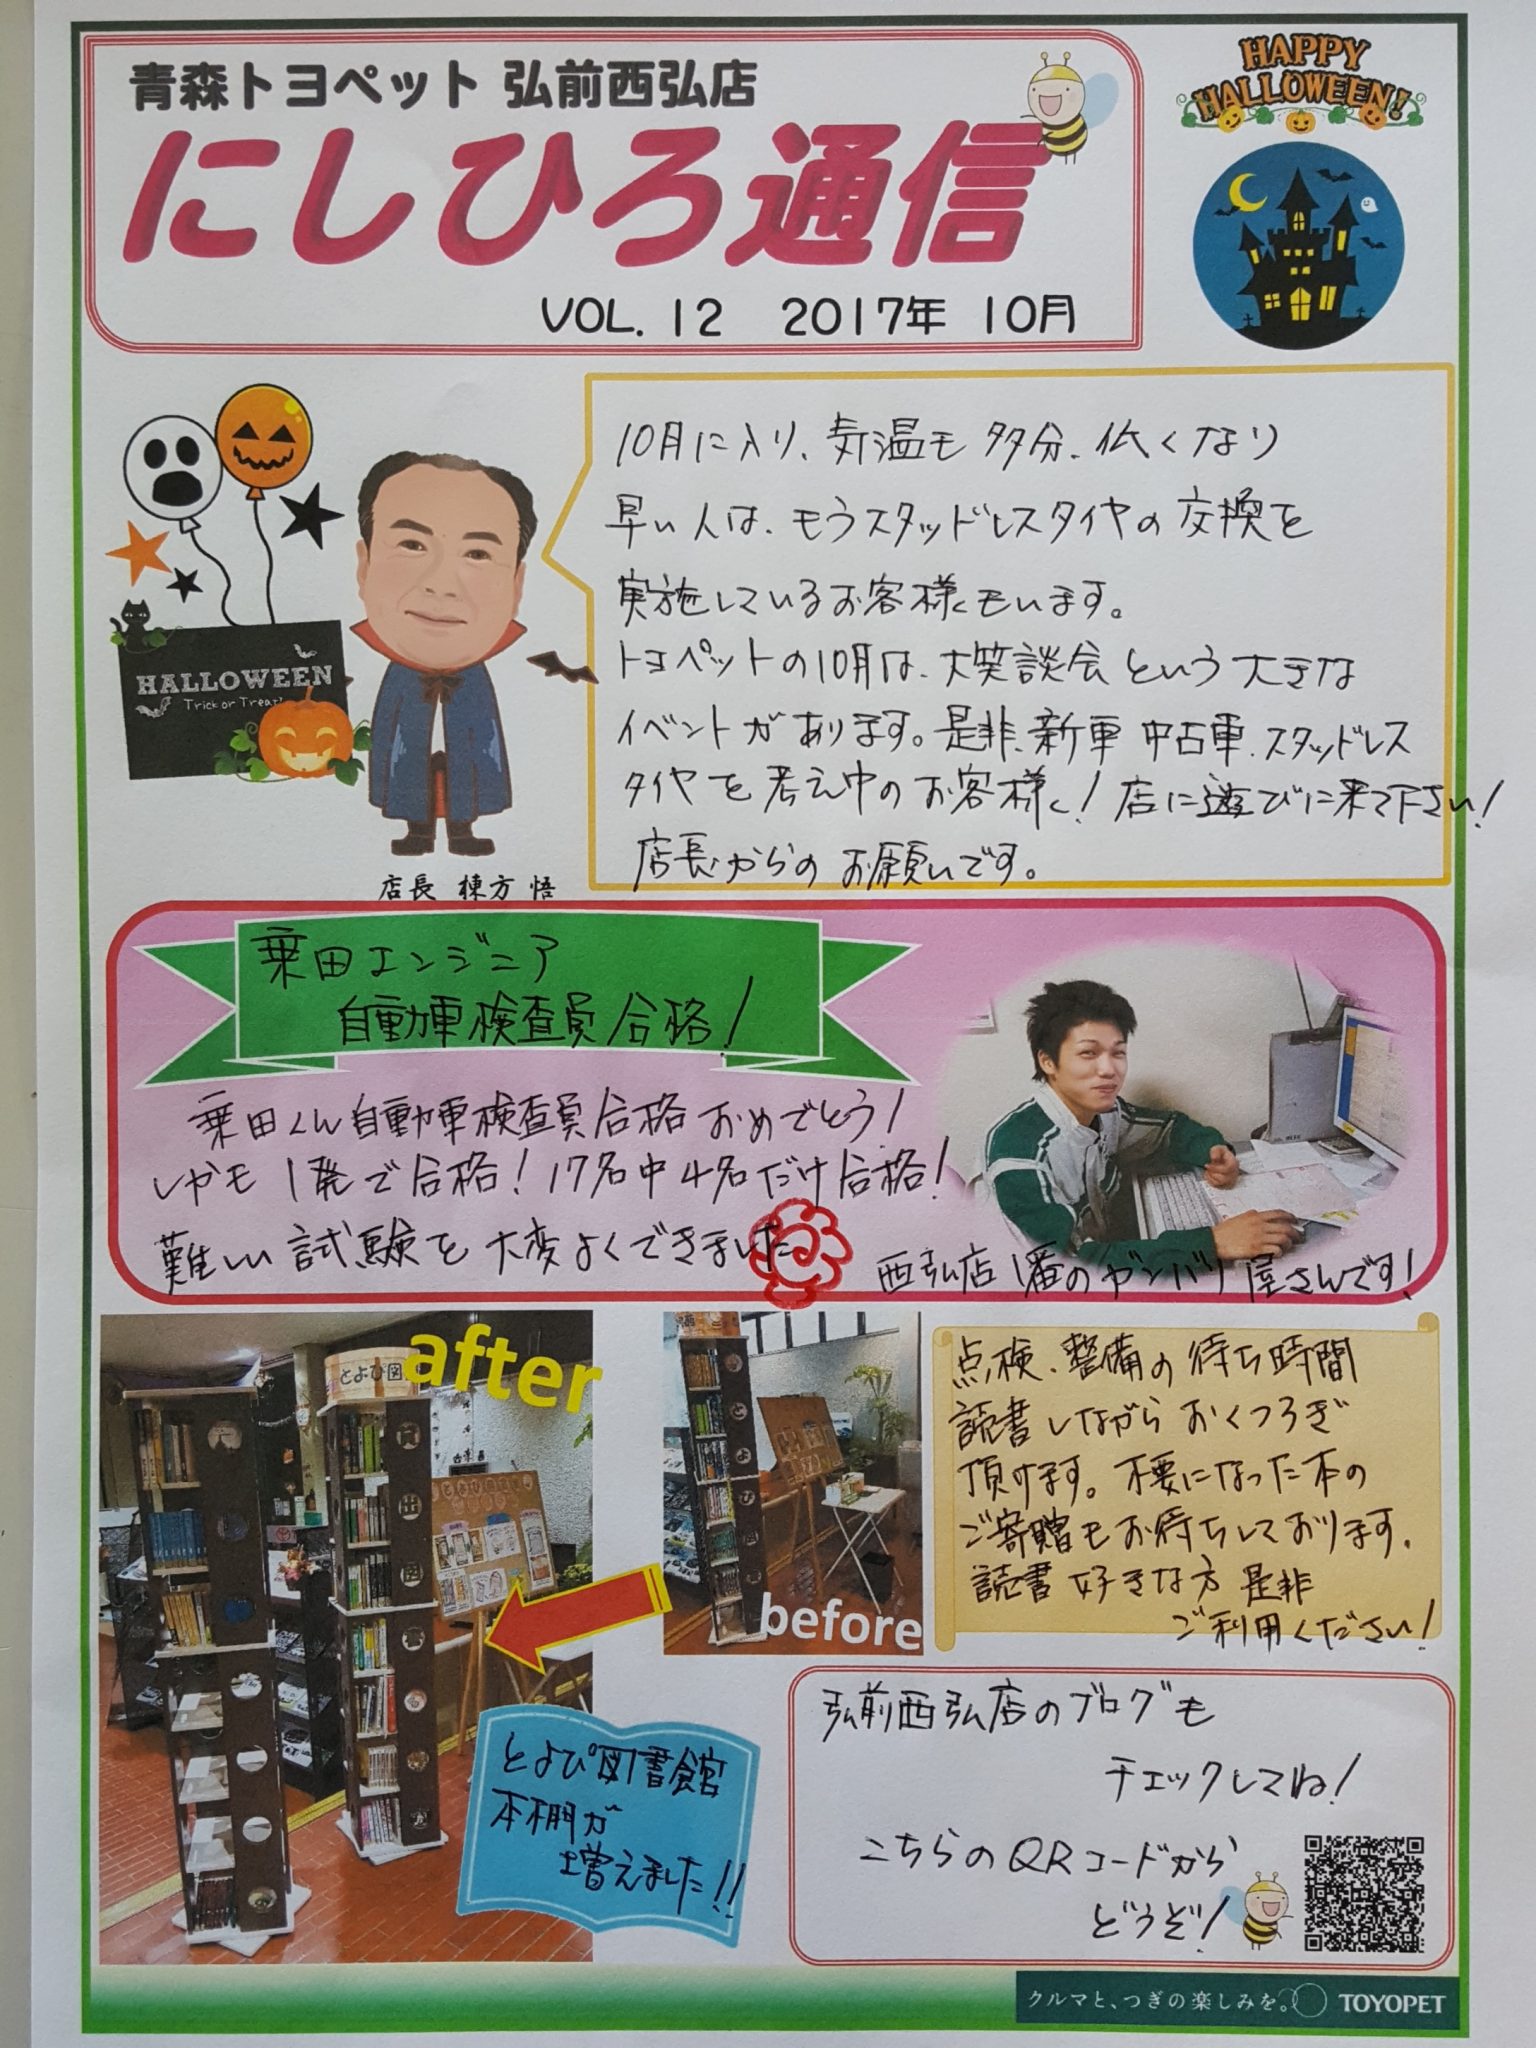 青森トヨペット 弘前西弘店
にしひろ通信
VOL.12 2017年 10月
HAPPY
HALLOWEEN!
10月に入り、気温も多分、低くなり
早い人は、もうスタッドレスタイヤの交換を
実施しているお客様もいます。
トヨペットの10月は、大笑談会という大きな
イベントがあります。是非、新車 中古車、スタッドレス
タイヤを考え中のお客様!店に遊びに来て下さい!
店長からのお願いです。
HALLOWEEN
Trick or Treat!
店長 棟方 悟
乗田エンジニア
自動車検査員合格!
乗田くん自動車検査員合格おめでとう!
しかも1発で合格!17名中4名だけ合格!
難しい試験を大変よくできました
西弘店1番のガンバリ屋さんです!
after
とよぴ図
before
点検、整備の待ち時間
読書しながらおくつろぎ
頂けます。不要になった本の
ご寄贈もお待ちしております。
読書好きな方是非
ご利用ください!
とよぴ図書館
本棚が
増えました!!
弘前西弘店のブログも
チェックしてね!
こちらのQRコードから
どうぞ!
クルマと、つぎの楽しみを。 TOYOPET